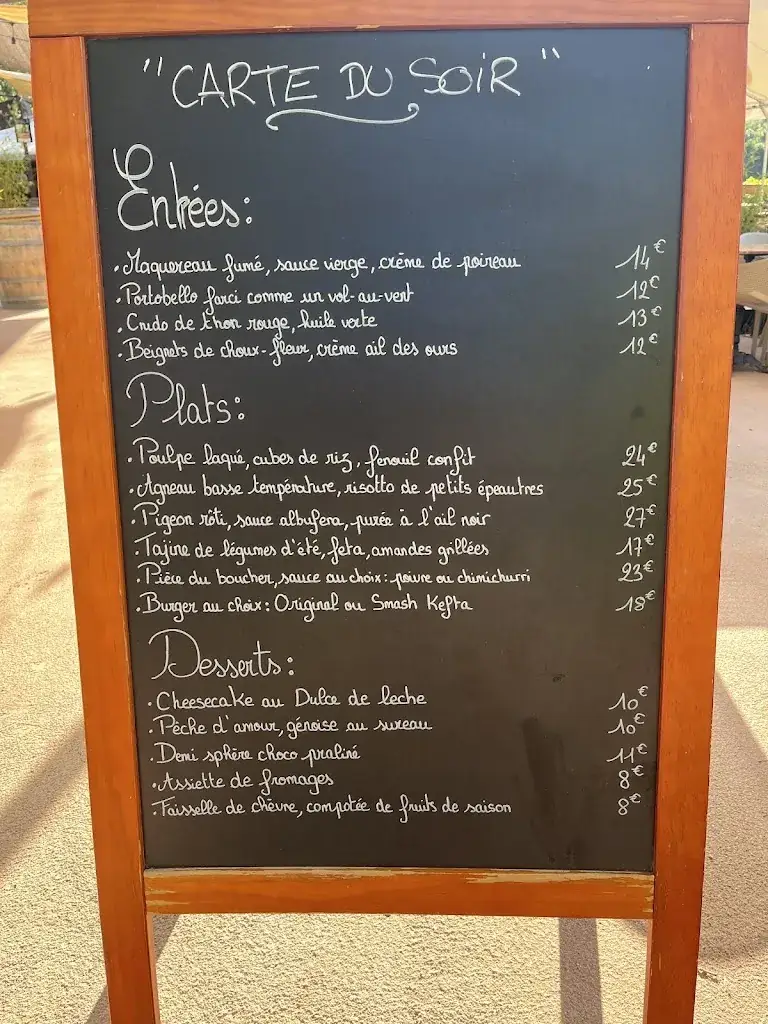 "CARTE DU SOIR"
Entrées:
· Maquereau fumé, sauce vierge, crème de poireau 14€
· Portobello farci comme un vol-au-vent 12€
· Crudo de thon rouge, huile verte 13€
· Beignets de choux-fleur, crème ail des ours 12€
Plats:
· Poulpe laqué, cubes de riz, fenouil confit 24€
· Agneau basse température, risotto de petits épeautres 25€
· Pigeon rôti, sauce albufera, purée à l'ail noir 27€
· Tajine de légumes d'été, feta, amandes grillées 17€
· Pièce du boucher, sauce au choix: poivre ou chimichurri 23€
· Burger au choix: Original ou Smash Kefta 18€
Desserts:
· Cheesecake au Dulce de leche 10€
· Pêche d'amour, génoise au sureau 10€
· Demi sphère choco praliné 11€
· Assiette de fromages 8€
· Faisselle de chèvre, compotée de fruits de saison 8€